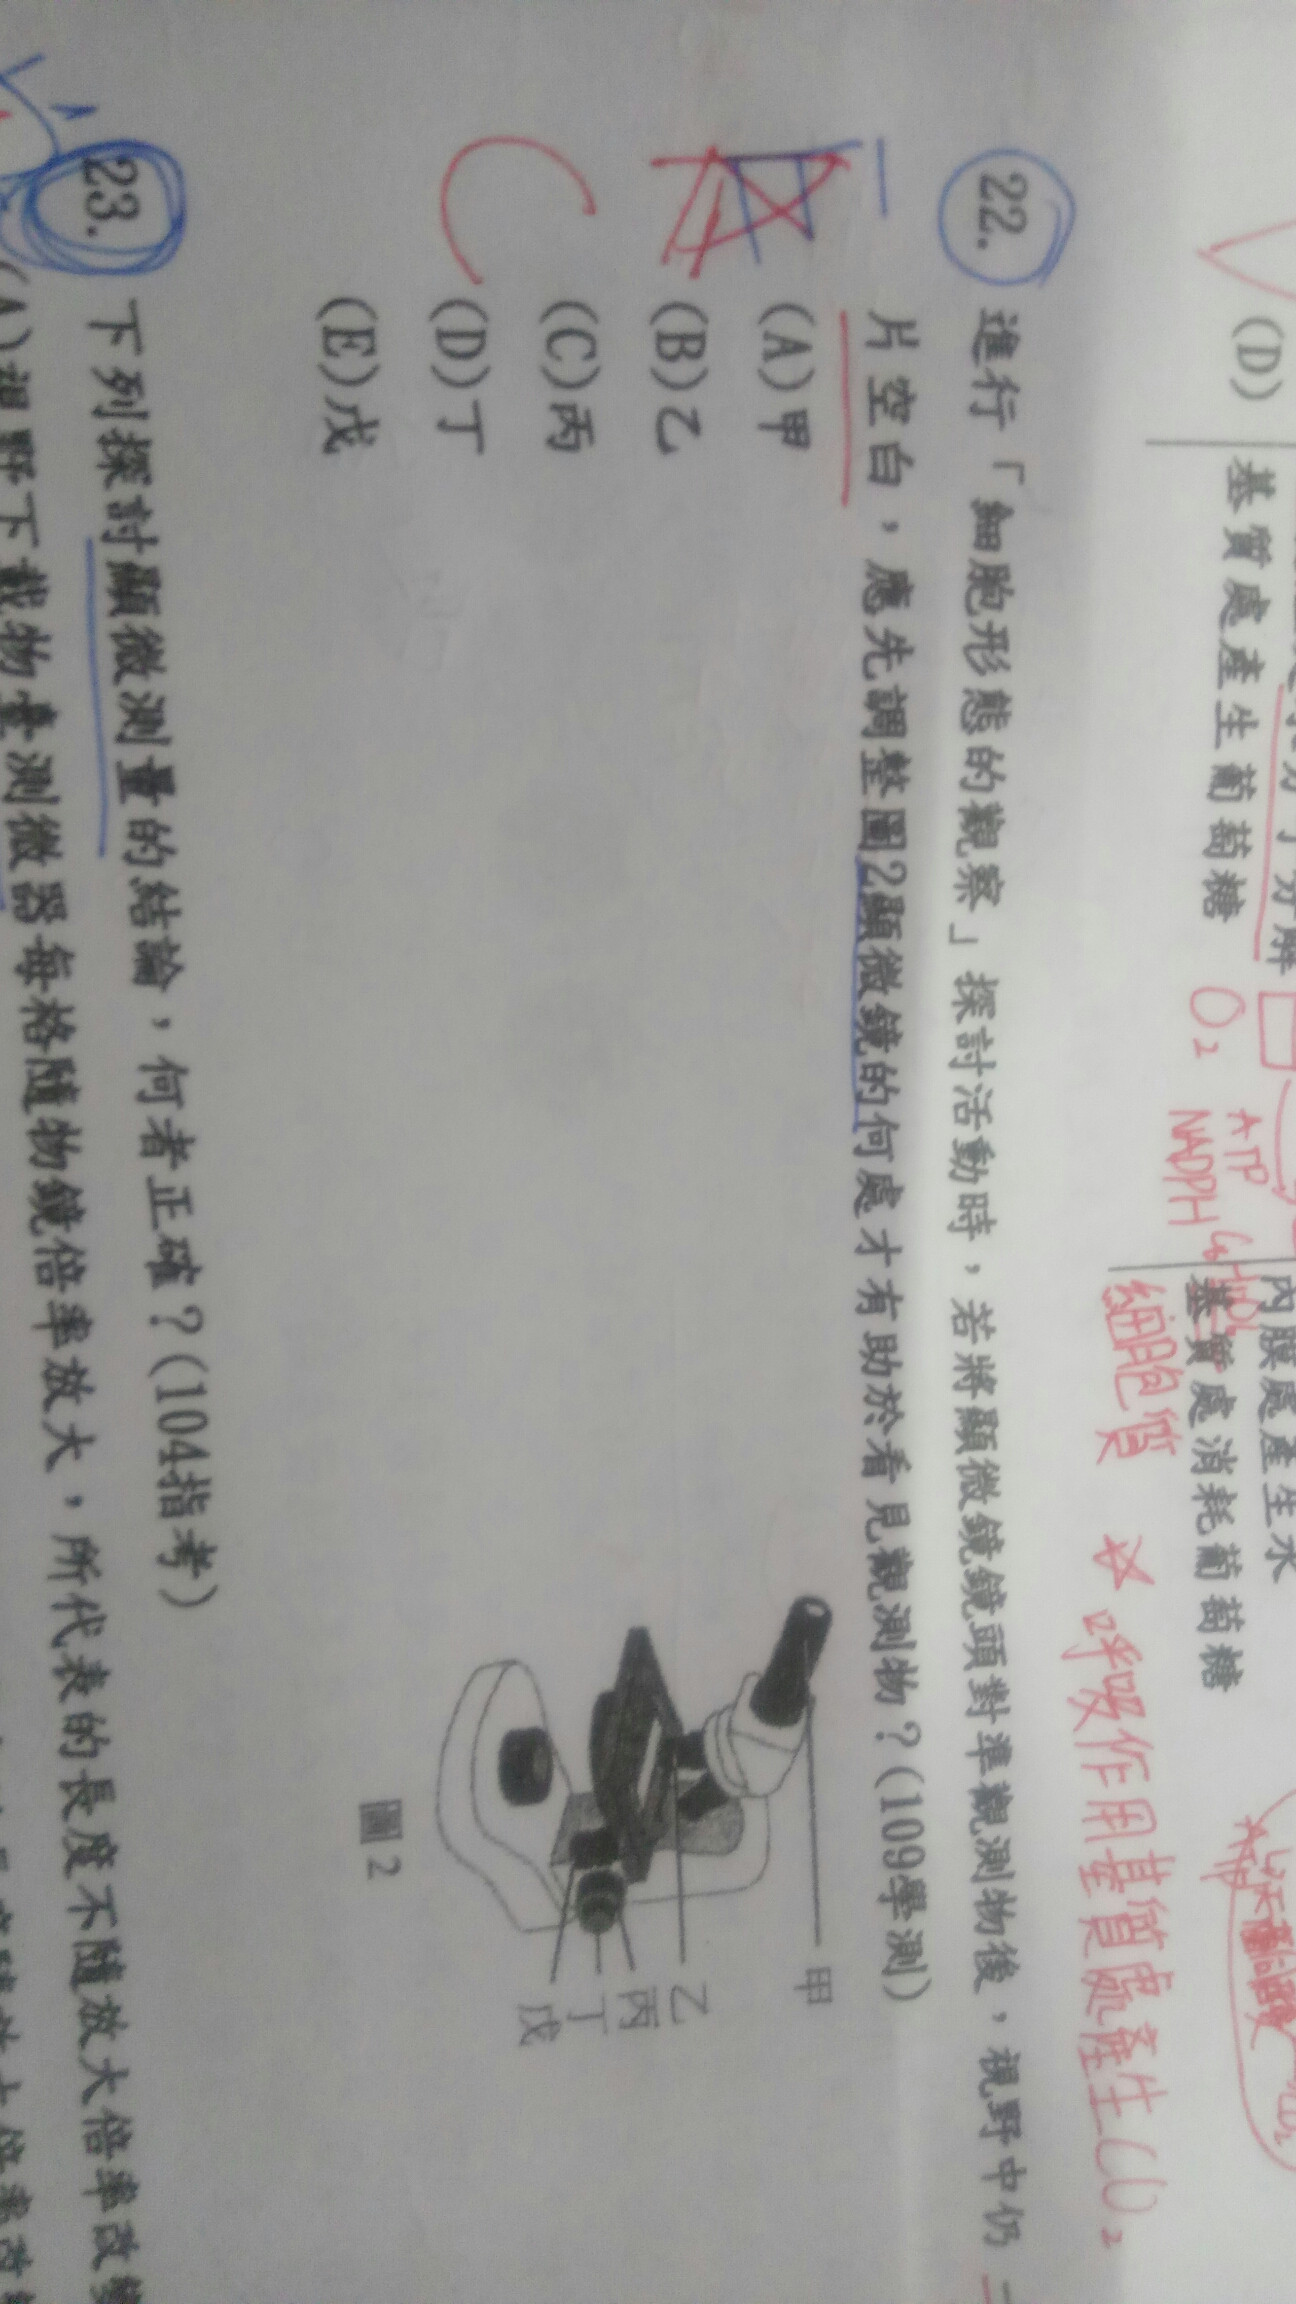 (D) 基質處產生葡萄糖 基質處消耗葡萄糖
內膜處產生水
O₂
ATP
NADPH
細胞質 ☆呼吸作用基質處產生CO₂
22. 進行「細胞形態的觀察」探討活動時，若將顯微鏡鏡頭對準觀測物後，視野中仍一
片空白，應先調整圖2顯微鏡的何處才有助於看見觀測物？(109學測)
(A)甲
(B)乙
(C)丙
(D)丁
(E)戊
C
甲
乙
丙
丁
戊
圖2
23. 下列探討顯微測量的結論，何者正確？(104指考)
(A)視野下載物臺測微器每格隨物鏡倍率放大，所代表的長度不隨放大倍率改變